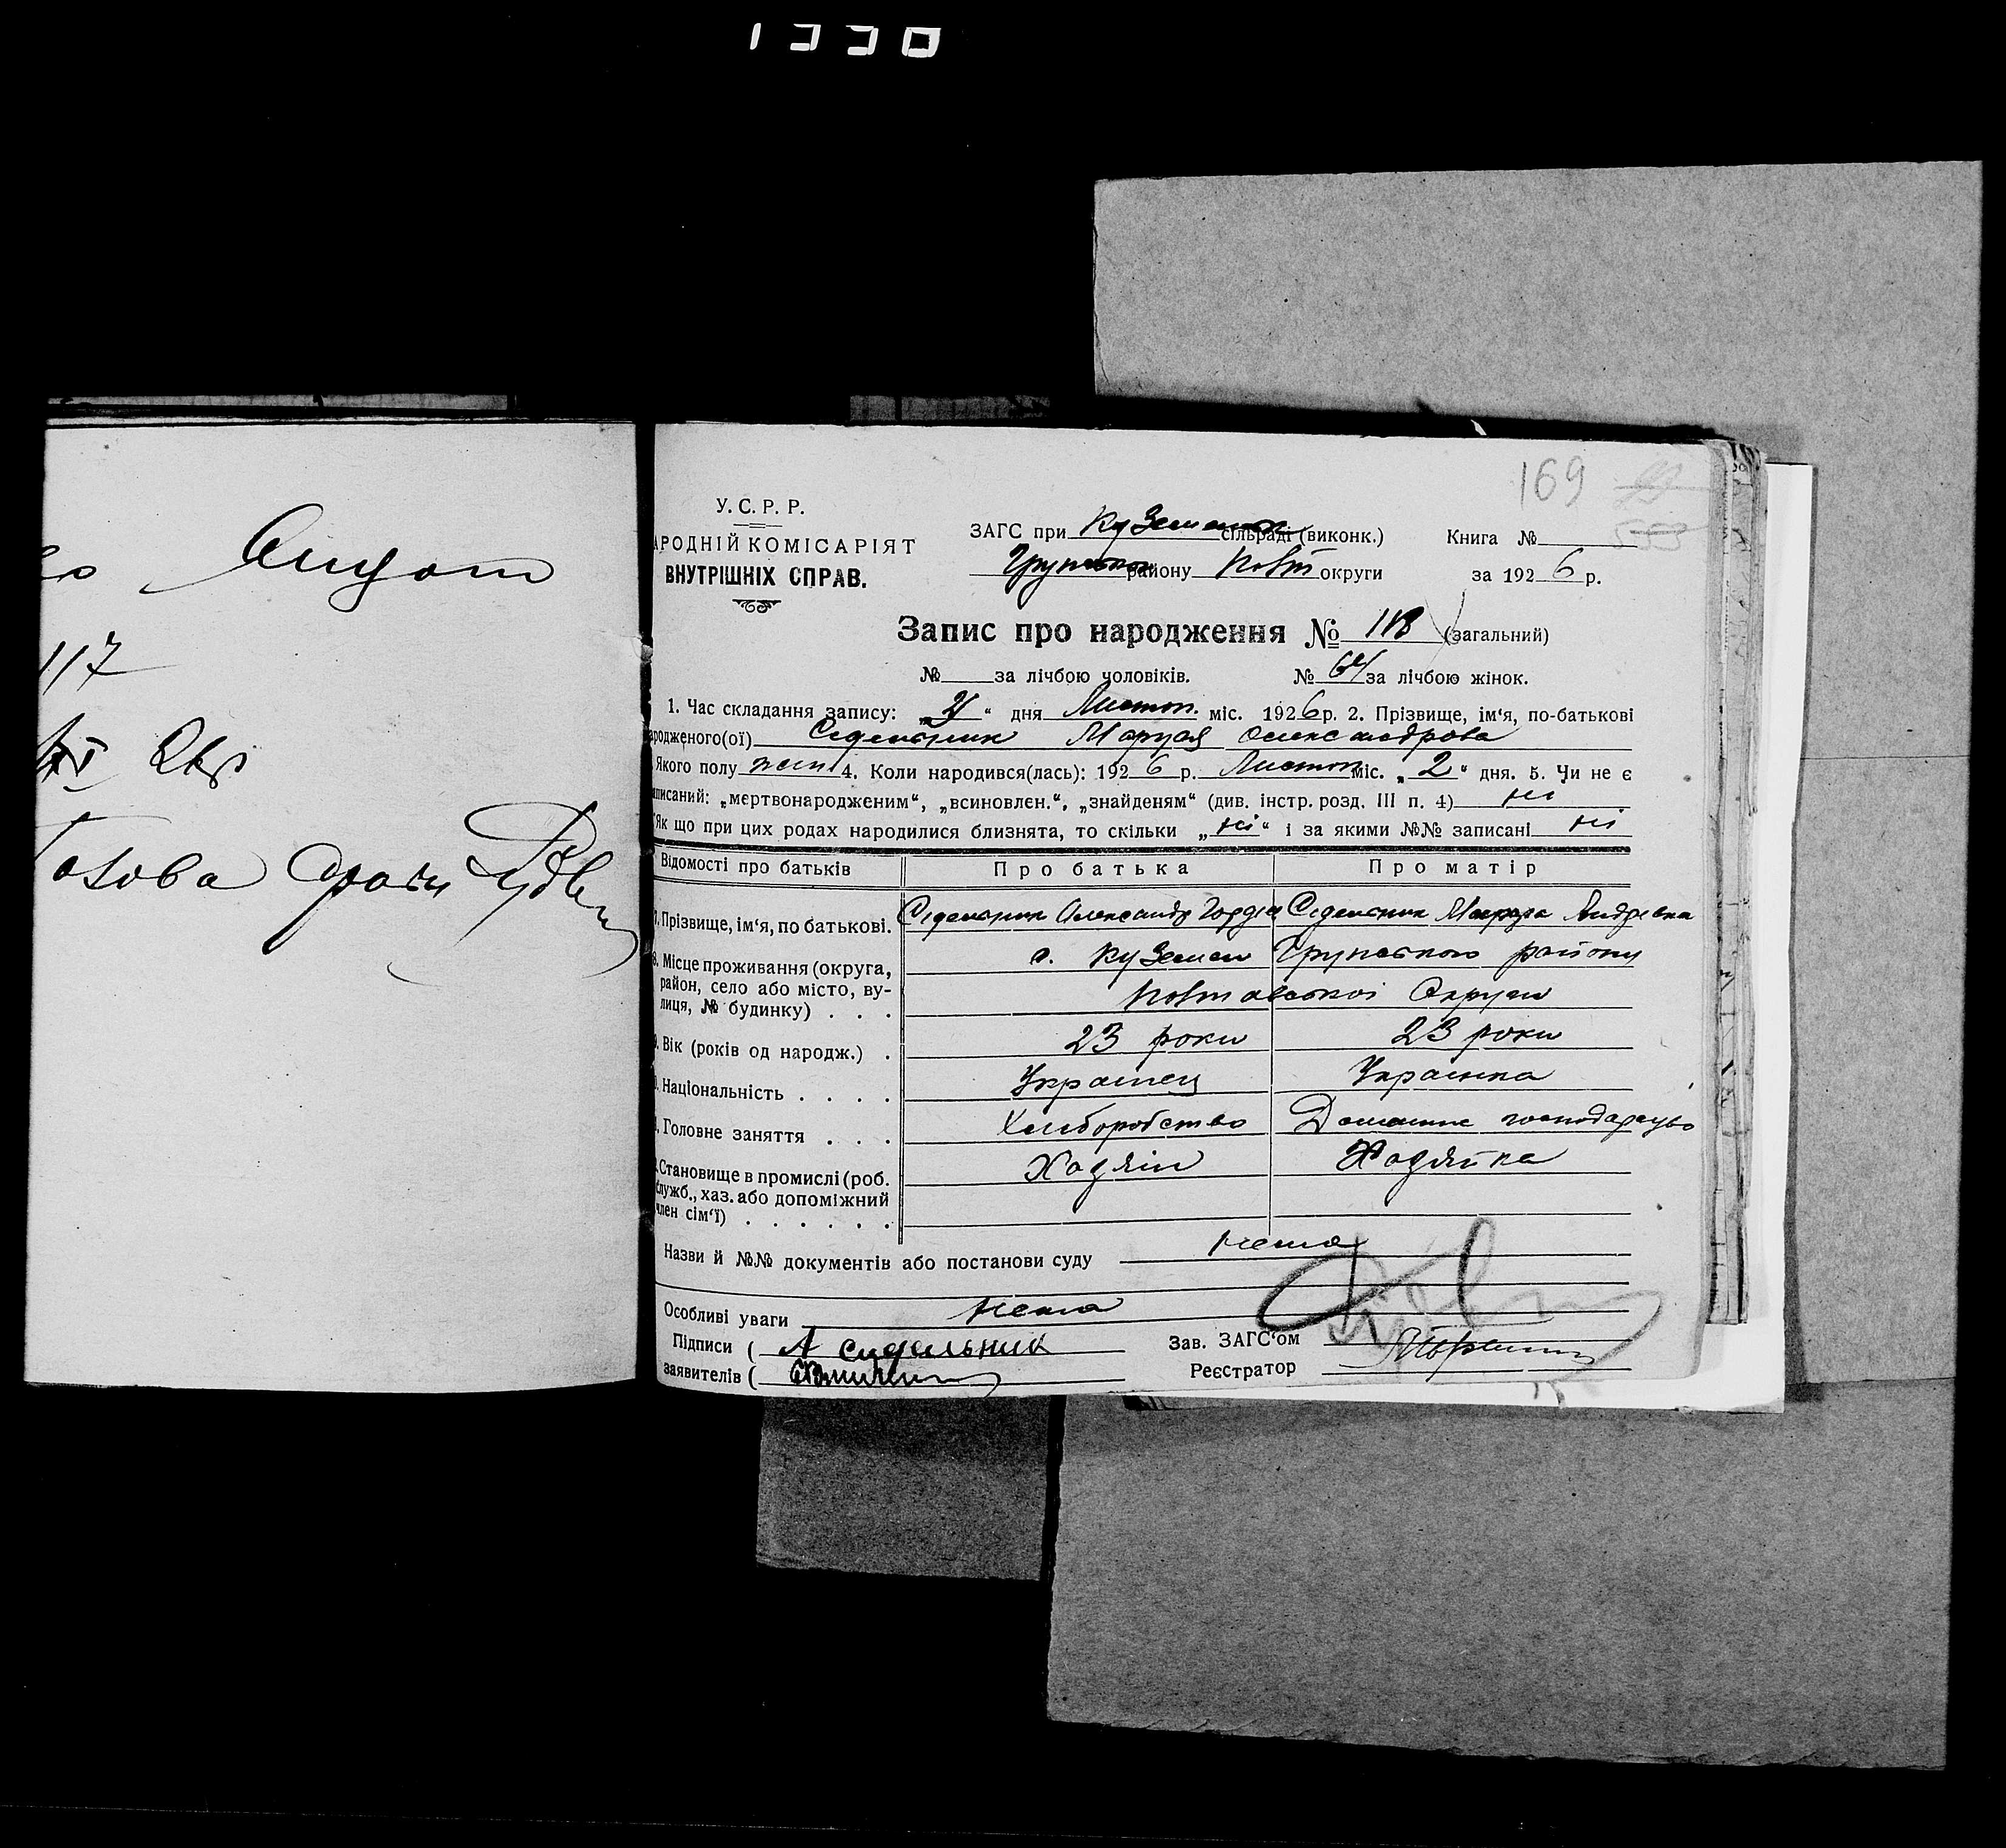 1330
Видом
117
169
У. С. Р. Р.
АРОДНІЙ КОМІСАРІЯТ
ВНУТРІШНІХ СПРАВ.
ЗАГС при Куземен сільраді (виконк.) Книга №
Грунськом району Полт округи за 1926 р.
Запис про народження № 118 (загальний)
№ за лічбою чоловіків. № 64 за лічбою жінок.
1. Час складання запису: „ “ дня Листоп. міс. 1926 р. 2. Прізвище, ім‘я, по-батькові
ародженого(ої) Сідельник Маруся Олександрова
Якого полу жін 4. Коли народився(лась): 1926 р. Листоп міс. „2“ дня. 5. Чи не є
аписаний: „мертвонародженим“, „всиновлен.“, „знайденям“ (див. інстр. розд. III п. 4) ні
Як що при цих родах народилися близнята, то скільки „ні“ і за якими №№ записані ні
Відомості про батьків Про батька Про матір
7. Прізвище, ім‘я, по батькові. Сідельник Олександр Гордіев Сідельник Андрієвна
8. Місце проживання (округа, с. Куземен Грунського району
район, село або місто, ву-
лиця, № будинку) . . . Полтавської Округи
9. Вік (років од народж.) . 23 роки 23 роки
Національність . . . . Українец Українка
Головне заняття . . . Хліборобство Домашне господарство
Становище в промислі (роб. Хозяін Хозяйка
служб., хаз. або допоміжний
член сім‘ї) . . . . . .
Назви й №№ документів або постанови суду нема
Особливі уваги нема
Підписи ( А Сидельник Зав. ЗАГС‘ом
заявителів ( Реєстратор